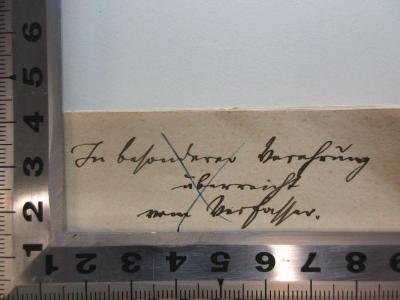 In besonderer Verehrung
überreicht
vom Verfasser.
6
5
4
3
2
1
1 2 3 4 5 6 7 8